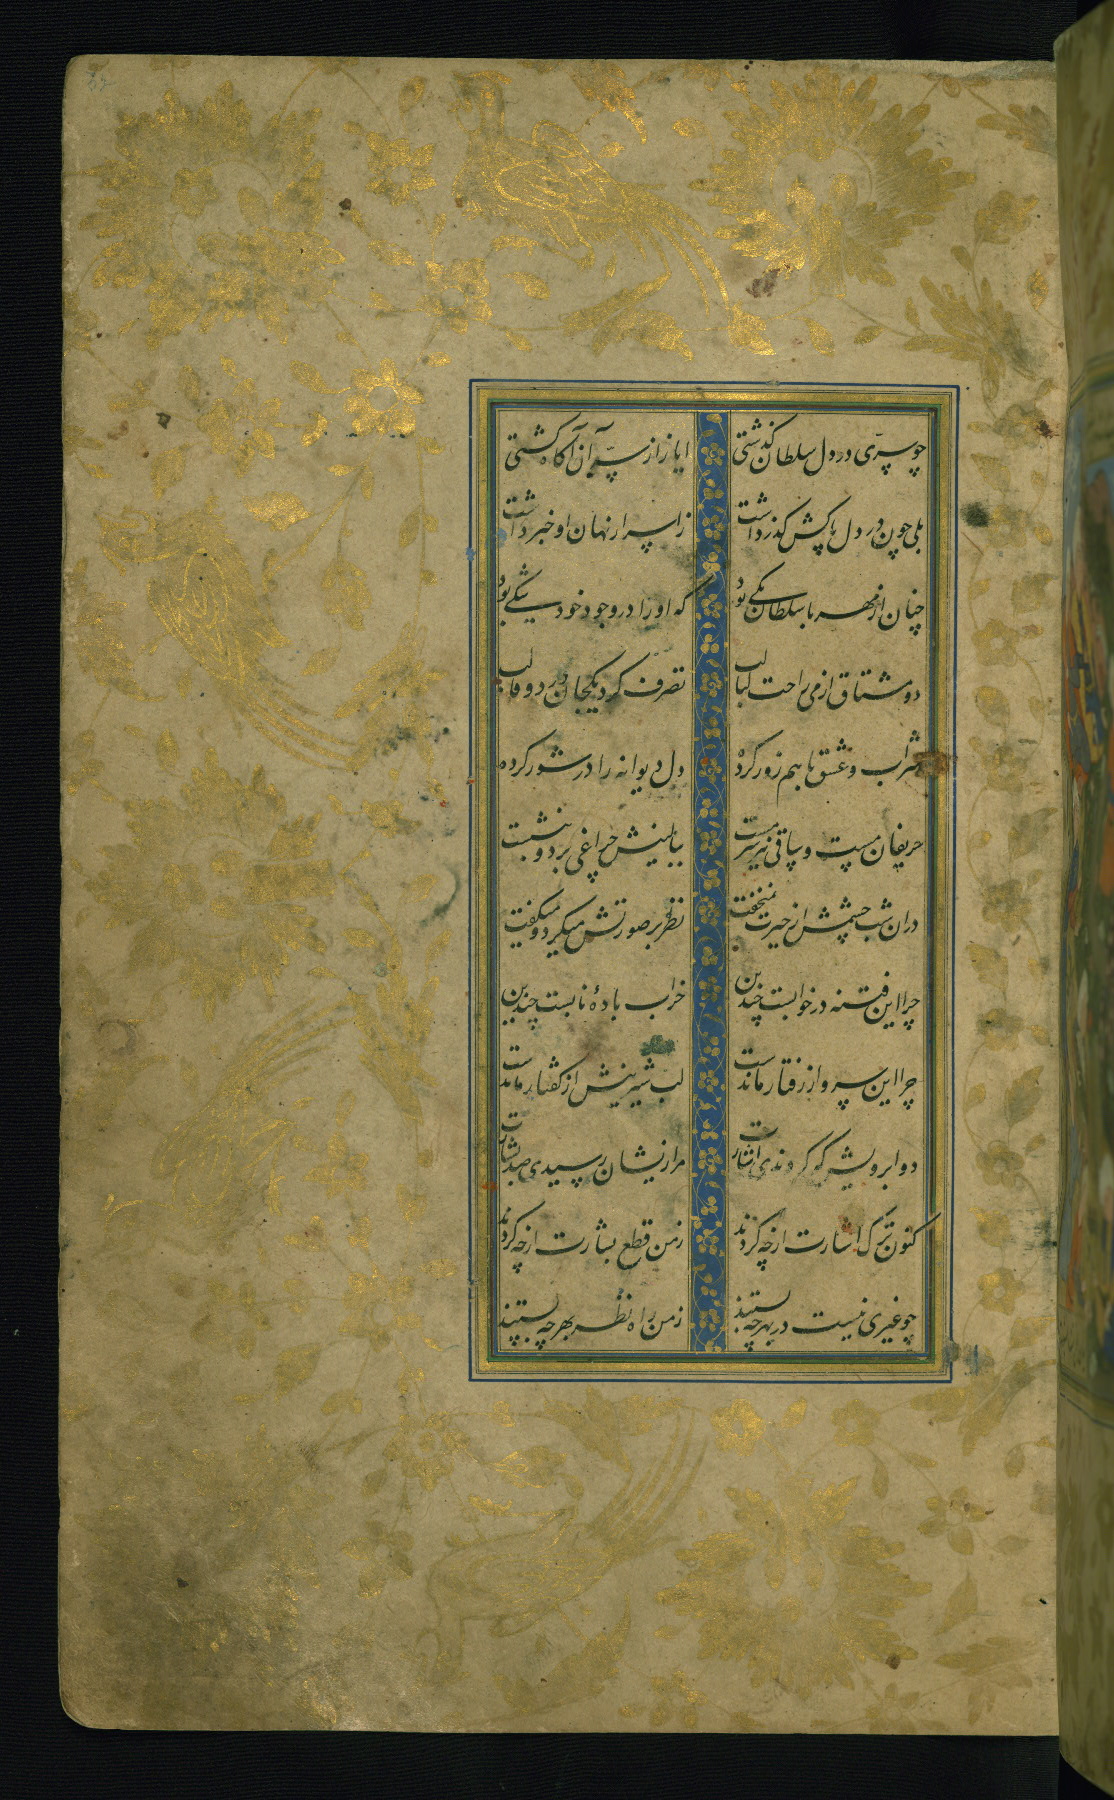 چو سرّی در دل سلطان گذشتی ایاز از سرّ آن آگاه گشتی
بلی چون در دل پاکش گذر داشت ز اسرار نهان او خبر داشت
چنان از مهر با سلطان یکی بود که او را در وجود خود شکی بود
دو مشتاق از می راحت لبالب تصرف کرد یکجان در دو قالب
شراب و عشق با هم زور کرده دل دیوانه را در شور کرده
حریفان مست و ساقی نیز سرمست ببالینش چراغی برد و بنشست
دران شب چشمش از حیرت نمیخفت نظر بر صورتش میکرد و میگفت
چرا این فتنه در خوابست چندین خراب بادهٔ نابست چندین
چرا این سرو از رفتار ماندست لب شیرینش از گفتار ماندست
دو ابرویش که کردندی اشارت مرا زیشان رسیدی صد بشارت
کنون ترک اشارت از چه کردند ز من قطع بشارت از چه کردند
چو غیری نیست در بهر چه بستند ز من راه نظر بهر چه بستند